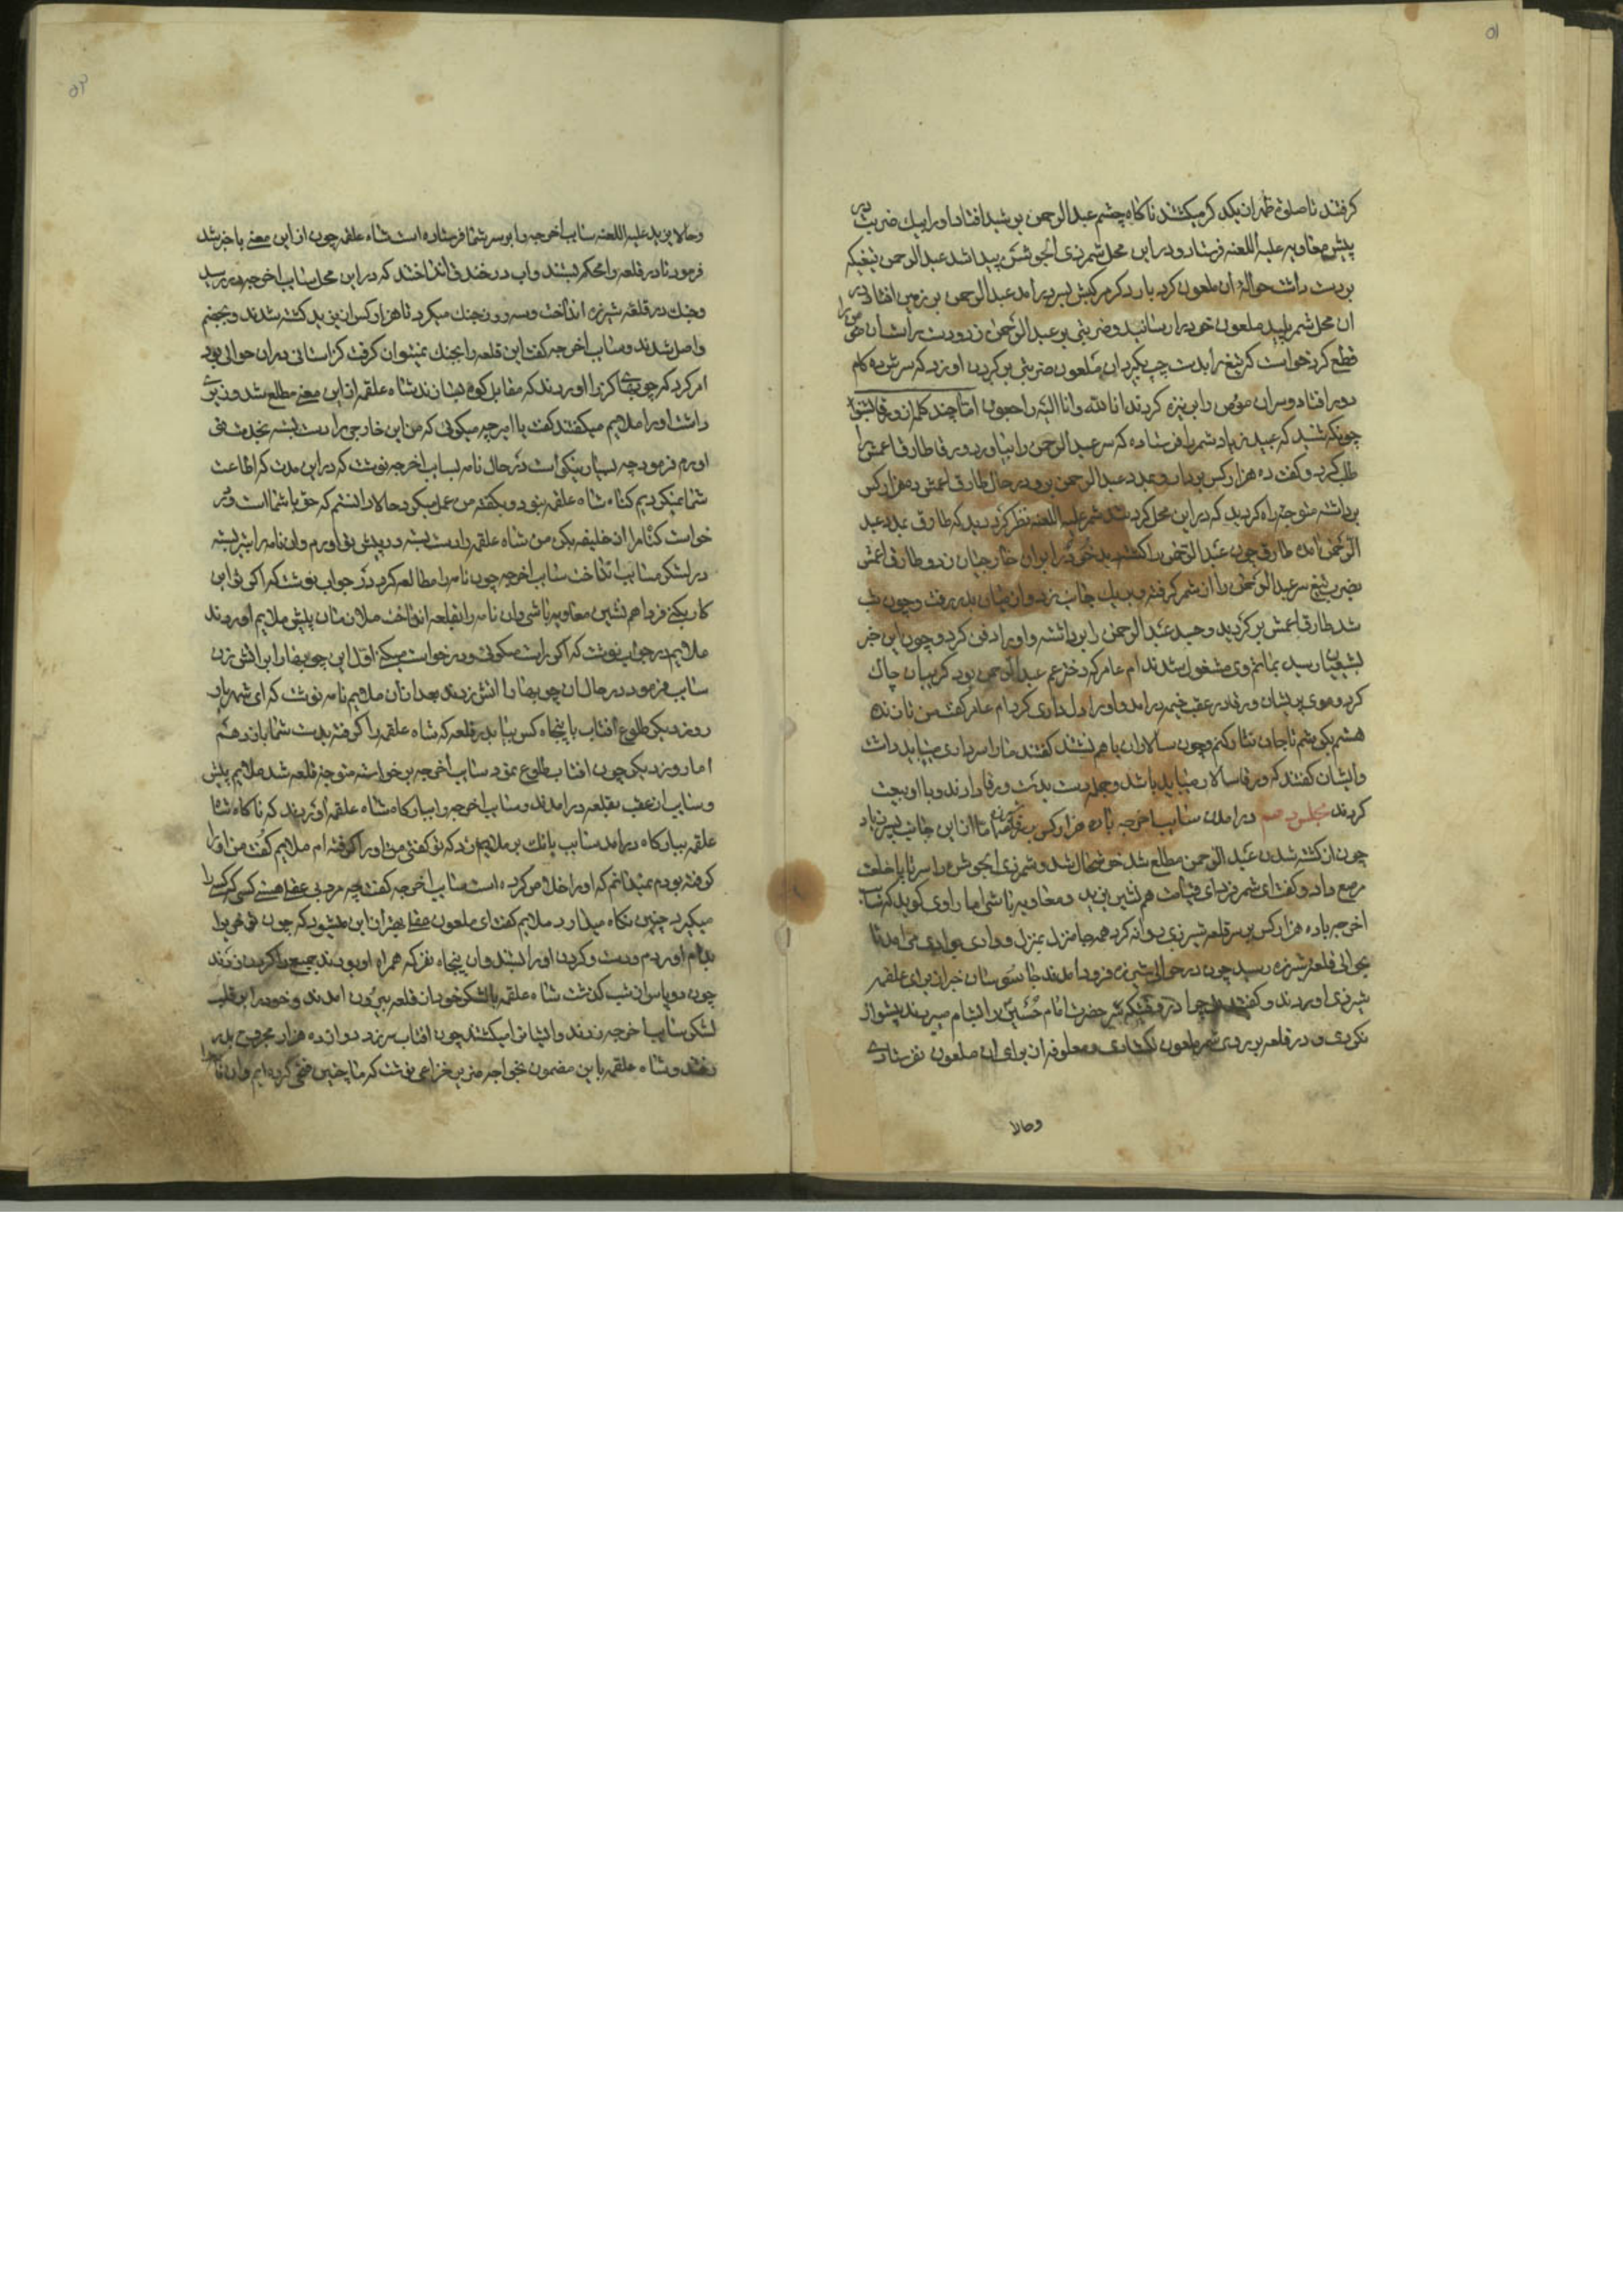 ۵۱
کرفتند تا صلوة ظهر از یکدکر میکشتند ناکاه چشم عبدالرحمن بر شیدا فتاد اورا بیک ضربت در
پیش معاویه علیه اللعنه فرستاد و در این محل شمر ذی الجوشن پیدا شد عبدالرحمن تیغیکه
بر دست داشت حوالهٔ آن ملعون کرد بار دکر مرکبش بسر درامد عبدالرحمن بر زمین افتاد در
ان محل شمر پلید ملعون خودرا رسانید و ضربتی بر عبدالرحمن زد و دست راست آن مؤمن را
قطع کرد خواست که تیغ را بدست چپ بکیرد آن ملعون ضربتی بر کردن او زد که سرش ده کام
دور افتاد و سر آن مؤمن را بر نیزه کردند انا لله و انا الیه راجعون اما چند کلمه از ورقا بشنو
چونکه شنید که عبید زیاد شمر را فرستاده که سر عبدالرحمن را بیاورد ورقا طارق اعمش را
طلب کرد و کفت ده هزار کس بردار و بمدد عبدالرحمن برو در حال طارق اعمش ده هزار کس
برداشته متوجه راه کردید که در این محل کرد شد شمر علیه اللعنه نظر کرد دید که طارق بمدد عبد
الرحمن امده طارق چون عبدالرحمن را کشته دید خودرا بر ان خارجیان زد و طارق اعمش
بضرب تیغ سر عبدالرحمن را از شمر کرفته و بدیک جانب زد و از میان بدر رفت و چون شب
شد طارق اعمش بر کردید و جسد عبدالرحمن را برداشته و اورا دفن کرد و چون این خبر
بشیعیان رسید بماتم وی مشغول شدند ام عامر که دختر عم عبدالرحمن بود کریبان چاک
کرد و موی پریشان ورقا در عقب خیمه درامد و اورا دلداری کرد ام عامر کفت من تا زنده
هستم بکوشم تا جان نثار کنم و چون سالاران باهم نشستند کفتند مارا سرداری میباید داشت
وایشان کفتند که ورقا سالار میباید باشد و جمله دست بدست ورقا دادند و با او بیعت
کردند مجلس دهم در امدن سنایب اخرجه با ده هزار کس بشیرزی اما از این جانب پسر زیاد
چون از کشته شدن عبدالرحمن مطلع شد خوشحال شد و شمر ذی الجوشن را سر تا پا خلعت
مرصع داد و کفت ای شمر فردای قیامت هم نشین یزید و معاویه باشی اما راوی کوید که سنایب
اخرجه با ده هزار کس بر سر قلعه شیرزی روانه کرد همه جا منزل بمنزل و وادی بوادی می امد تا
بحوالی قلعهٔ شیرزه رسید چون در حوالی شیرزه فرود امدند جاسوسان خبر از برای علقمه
شیرزی اوردند و کفتند چرا در وقتیکه سر حضرت امام حسین را بشام میبردند پیشواز
نکردی و در قلعه بر روی شمر ملعون نکشادی و معلوفه از برای ان ملعون نفرستادی
وحالا
۵۲
وحالا یزید علیه اللعنه سنایب اخرجه را بر سر شما فرستاده است شاه علقمه چون از این معنی با خبر شد
فرمود تا در قلعه را محکم بستند و اب در خندق انداختند که در این محل سنایب اخرجه در رسید
وجنک در قلعه شیرزه انداخت و سه روز جنک میکرد تا هزار کس از یزید کشته شدند و بجهنم
واصل شدند و سنایب اخرجه کفت این قلعه را بجنک نمیتوان کرفت کز استانی در ان حوالی بود
امر کرد که چوبهای کز را اوردند که مقابل کوه بسازند شاه علقمه از این معنی مطلع شد وزیری
داشت اورا ملایم میکفتند کفت یا امیر چه میکوئی که من این خارجی را دست بسته بخدمت
اورم فرمود چه بسیار نیکو است در حال نامه بسنایب اخرجه نوشت که در این مدت که اطاعت
شما نمیکردیم کناه شاه علقمه بود و بکفته من عمل نمیکرد حالا دانستم که حق با شما است و در
خواست کناه مرا از خلیفه بکن من شاه علقمه را دست بسته در پیش تو اورم وان نامه را بتیر بسته
در لشکر سنایب انداخت سنایب اخرجه چون نامه را مطالعه کرد در جواب نوشت که اکر تو این
کار بکنی فردا هم نشین معاویه باشی وان نامه را بقلعه انداخت ملازمان پیش ملایم اوردند
ملایم در جواب نوشت که اکر راست میکوئی و درخواست میکنی اول این چوبها را بر اتش زن
سنایب فرمود در حال ان چوبها را اتش زدند بعد از ان ملایم نامه نوشت که ای شهریار
روز دیکر طلوع افتاب با پنجاه کس بیا بدر قلعه که شاه علقمه را کرفته بدست شما باز دهم
اما روز دیکر چون افتاب طلوع نمود سنایب اخرجه برخواسته متوجه قلعه شد ملایم پیش
وسنایب از عقب بقلعه درامدند و سنایب اخرجه را ببارکاه شاه علقمه اوردند که ناکاه شاه
علقمه ببارکاه درامد سنایب بانک بر ملایم زد که تو کفتی من اورا کرفته ام ملایم کفت من اورا
کرفته بودم نمیدانم که اورا خلاص کرده است سنایب اخرجه کفت چه مرد بی عقل هستی کسی که کسی را
میکیرد چنین نکاه میدارد ملایم کفت ای ملعون عقل بهتر از این میشود که چون تو خر برا
بدام اوردم و دست و کردن اورا بستند وان پنجاه نفر که همراه او بودند جمیع را کردن زدند
چون دو پاس از شب کذشت شاه علقمه با لشکر خود از قلعه بیرون امدند و خودرا بر قلب
لشکر سنایب اخرجه زدند وایشانرا میکشتند چون افتاب سر زد دوازده هزار مجروح بدر
رفتند و شاه علقمه باین مضمون بخواجه مزین خزاعی نوشت که ما چنین فتحی کرده ایم وان نامه را